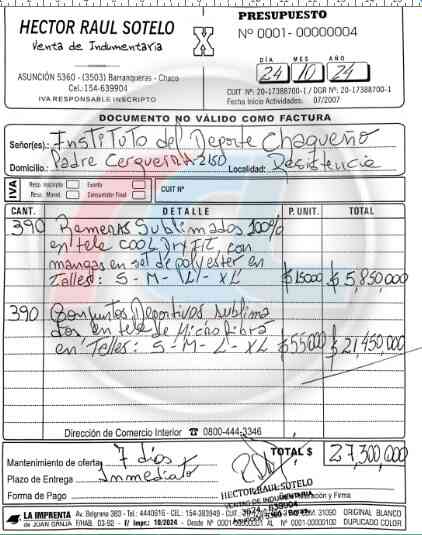 HECTOR RAUL SOTELO
Venta de Indumentaria
ASUNCIÓN 5360 - (3503) Barranqueras - Chaco
Cel.:154-639904
IVA RESPONSABLE INSCRIPTO
X
PRESUPUESTO
Nº 0001- 00000004
DÍA MES AÑO
24 10 24
CUIT Nº: 20-17388700-1 / DGR Nº: 20-17388700-1
Fecha Inicio Actividades: 07/2007
DOCUMENTO NO VÁLIDO COMO FACTURA
Señor(es).: Instituto del Deporte Chaqueño
Domicilio: Padre Cerqueira 2150 Localidad: Resistencia
IVA
Resp. Inscripto Exento
Resp. Monot. Consumidor Final
CUIT Nº
CANT. DETALLE P. UNIT. TOTAL
390 Remeras Sublimados 100%
en tela COOL Dry Fit, con
mangas en set de polyester en
Talles: S - M - L - XL $15000 $5,850,000
390 Conjuntos Deportivos sublima
dos en tela de Micro Fibra
en Telles: S - M - L - XL $55000 $21,450,000
Dirección de Comercio Interior ☎ 0800-444-3346
Mantenimiento de oferta: 7 días
TOTAL $ 27,300,000
Plazo de Entrega Inmediato
Forma de Pago
HECTOR RAUL SOTELO
VENTA DE INDUMENTARIA
3624 - 639904
y Firma
LA IMPRENTA Av. Belgrano 360 - Tel.: 4440616 - CEL: 154-383949 - CUIT
ORIGINAL BLANCO
de JUAN GRNJA F/HAB. 03-92 - F/ Impr.: 10/2024 - Desde Nº 0001-00000001 AL Nº 0001-00000100 DUPLICADO COLOR